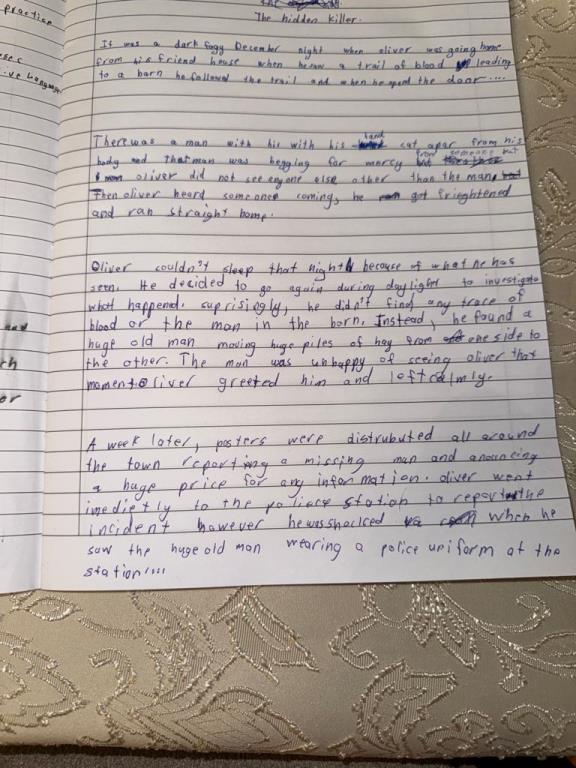 practice
ive Languag
The
The hidden killer.
It was a dark fogy December night when oliver was going home
from his friend house when he saw a trail of blood leading
to a barn he followed the trail and when he opend the door....
There was a man with his with his hand cat apar from his
body and that man was begging for mercy from someone but
oliver did not see anyone else other than the man,
Then oliver heard someone coming, he got frieghtened
and ran straight home.
Oliver couldn't sleep that night because of what he has
seen. He decided to go again during daylight to investigate
what happened. suprisigly, he didn't find any trace of
blood or the man in the barn. Instead, he found a
huge old man moving huge piles of hay from one side to
the other. The man was unhappy of seeing oliver that
moment oliver greeted him and left calmly.
A week later, posters were distrubuted all around
the town reporting a missing man and anouncing
a huge price for any information. oliver went
imedietly to the poliece station to report the
incident however he was shocked when he
saw the huge old man wearing a police uniform at the
station....